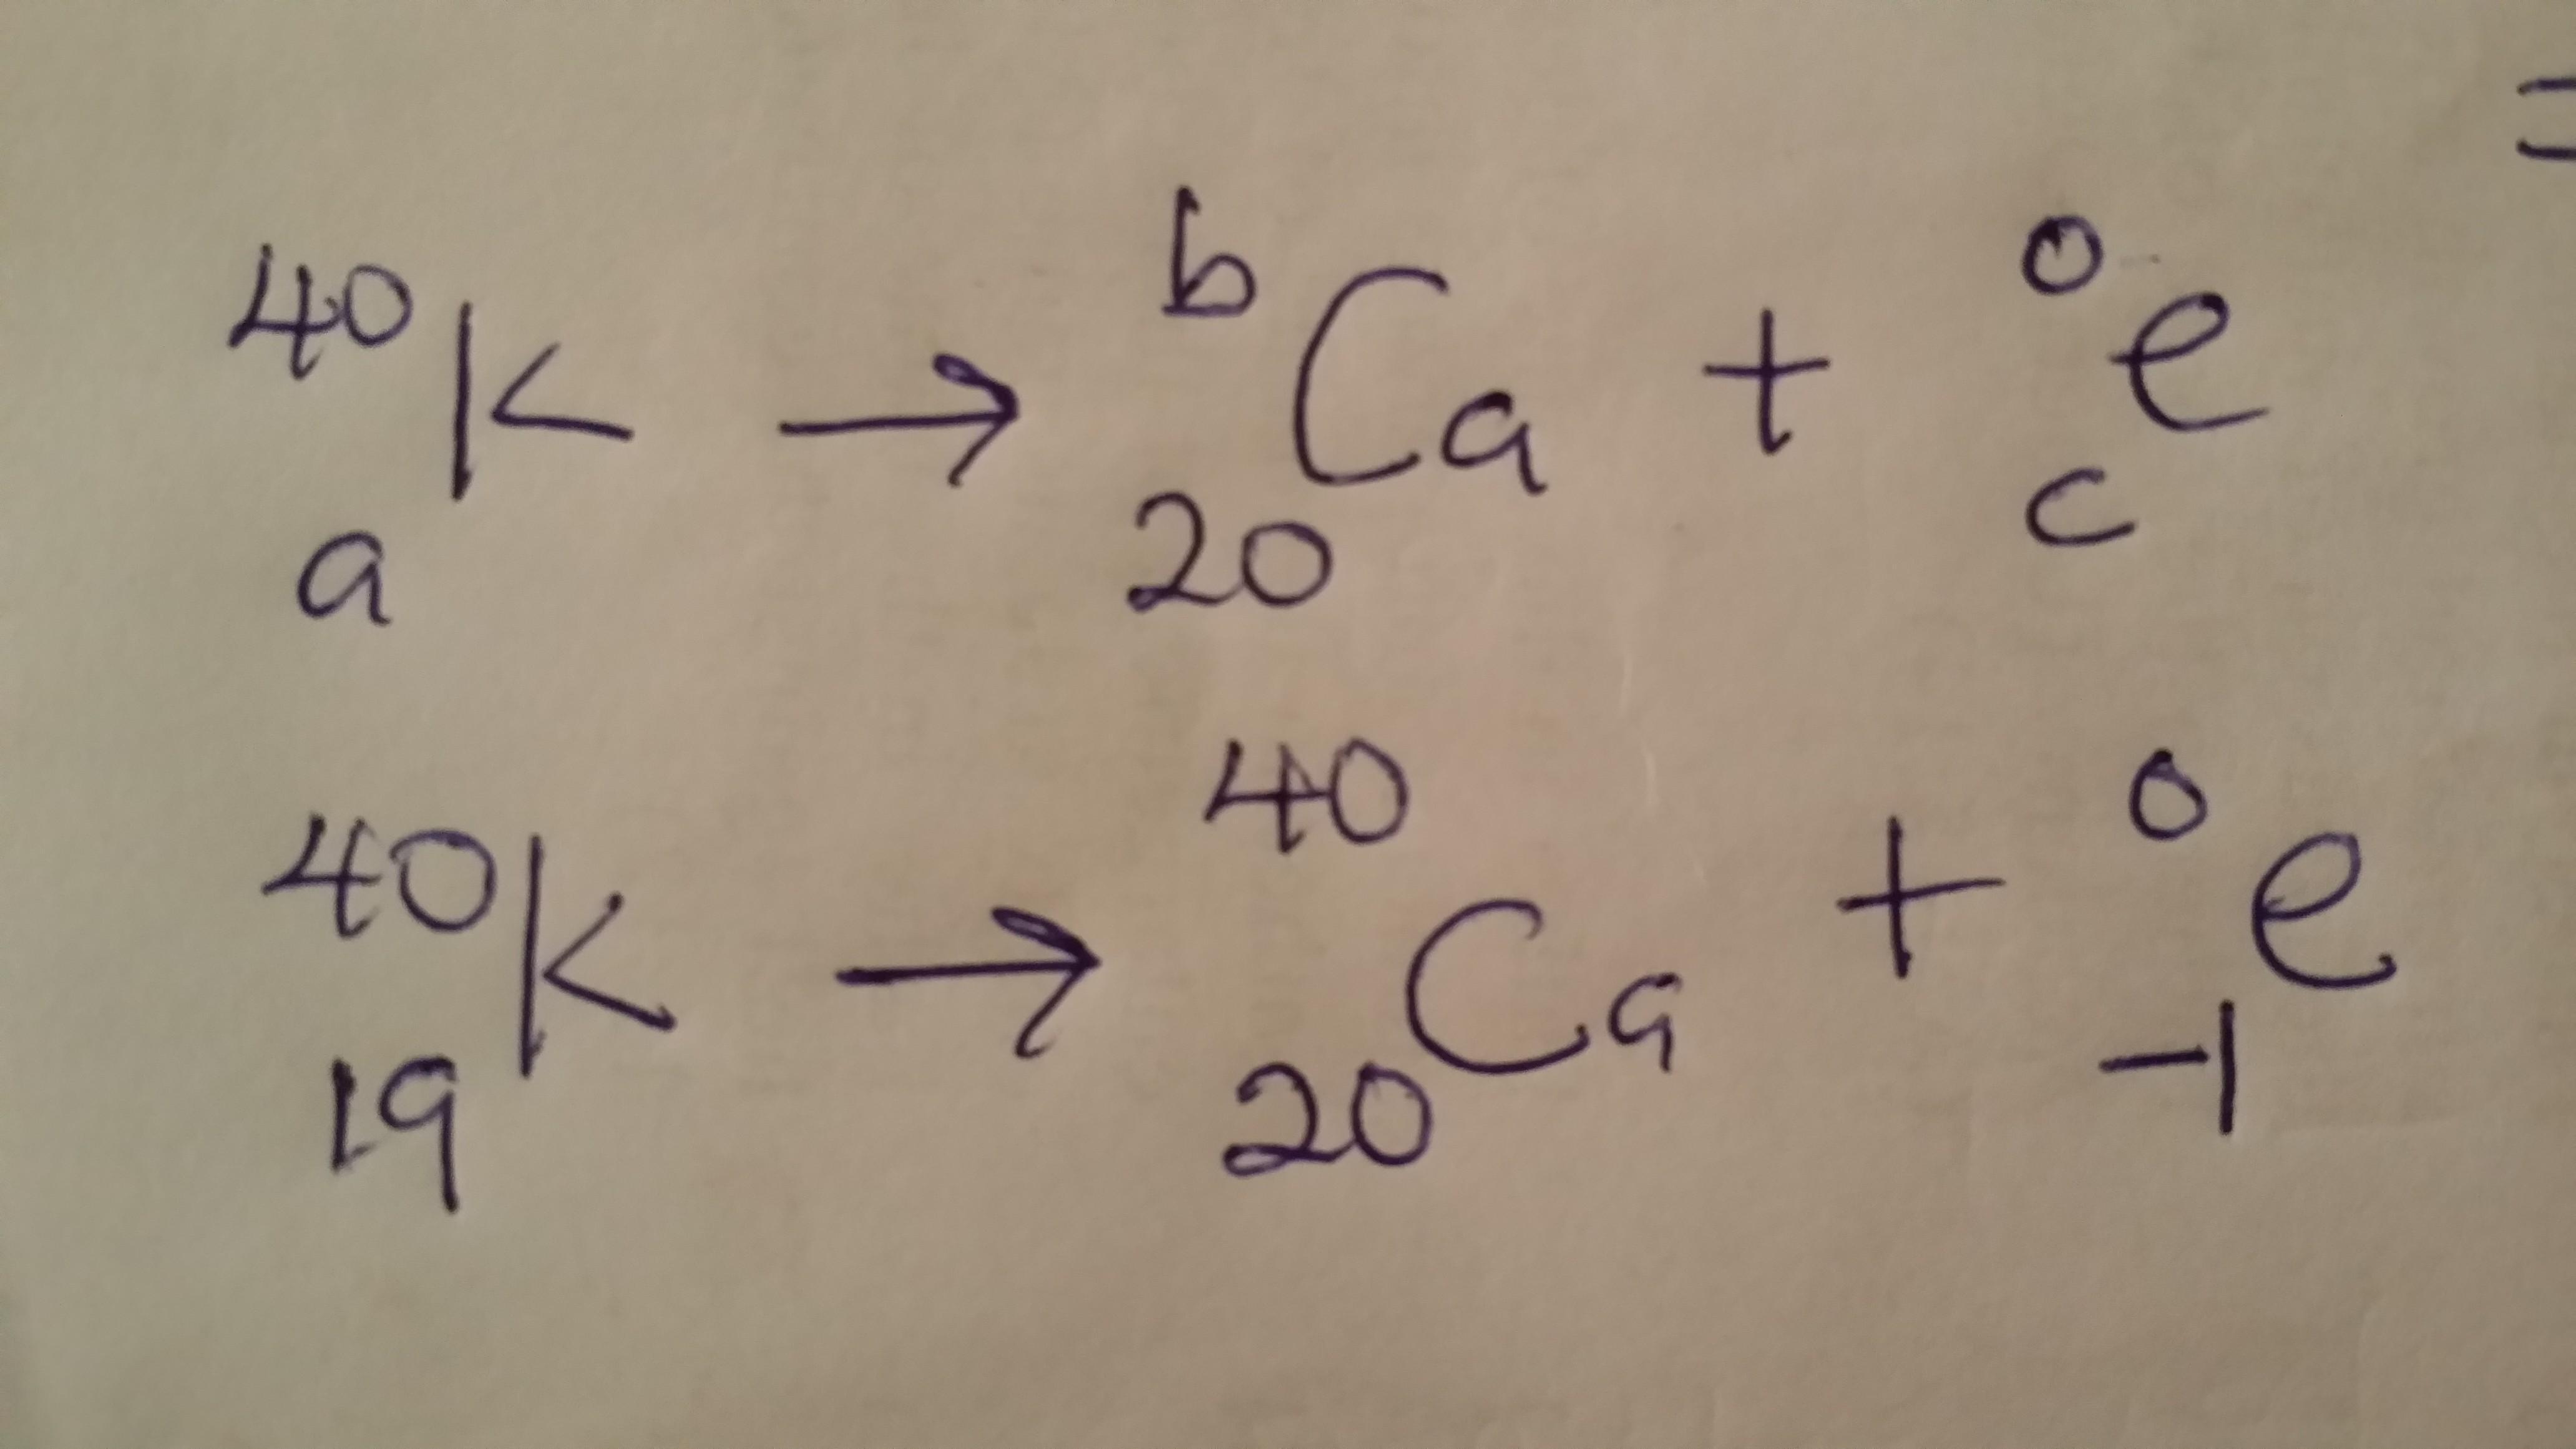 =
⁴⁰ₐK → ᵇ₂₀Ca + ⁰ce
⁴⁰₁₉K → ⁴⁰₂₀Ca + ⁰₋₁e